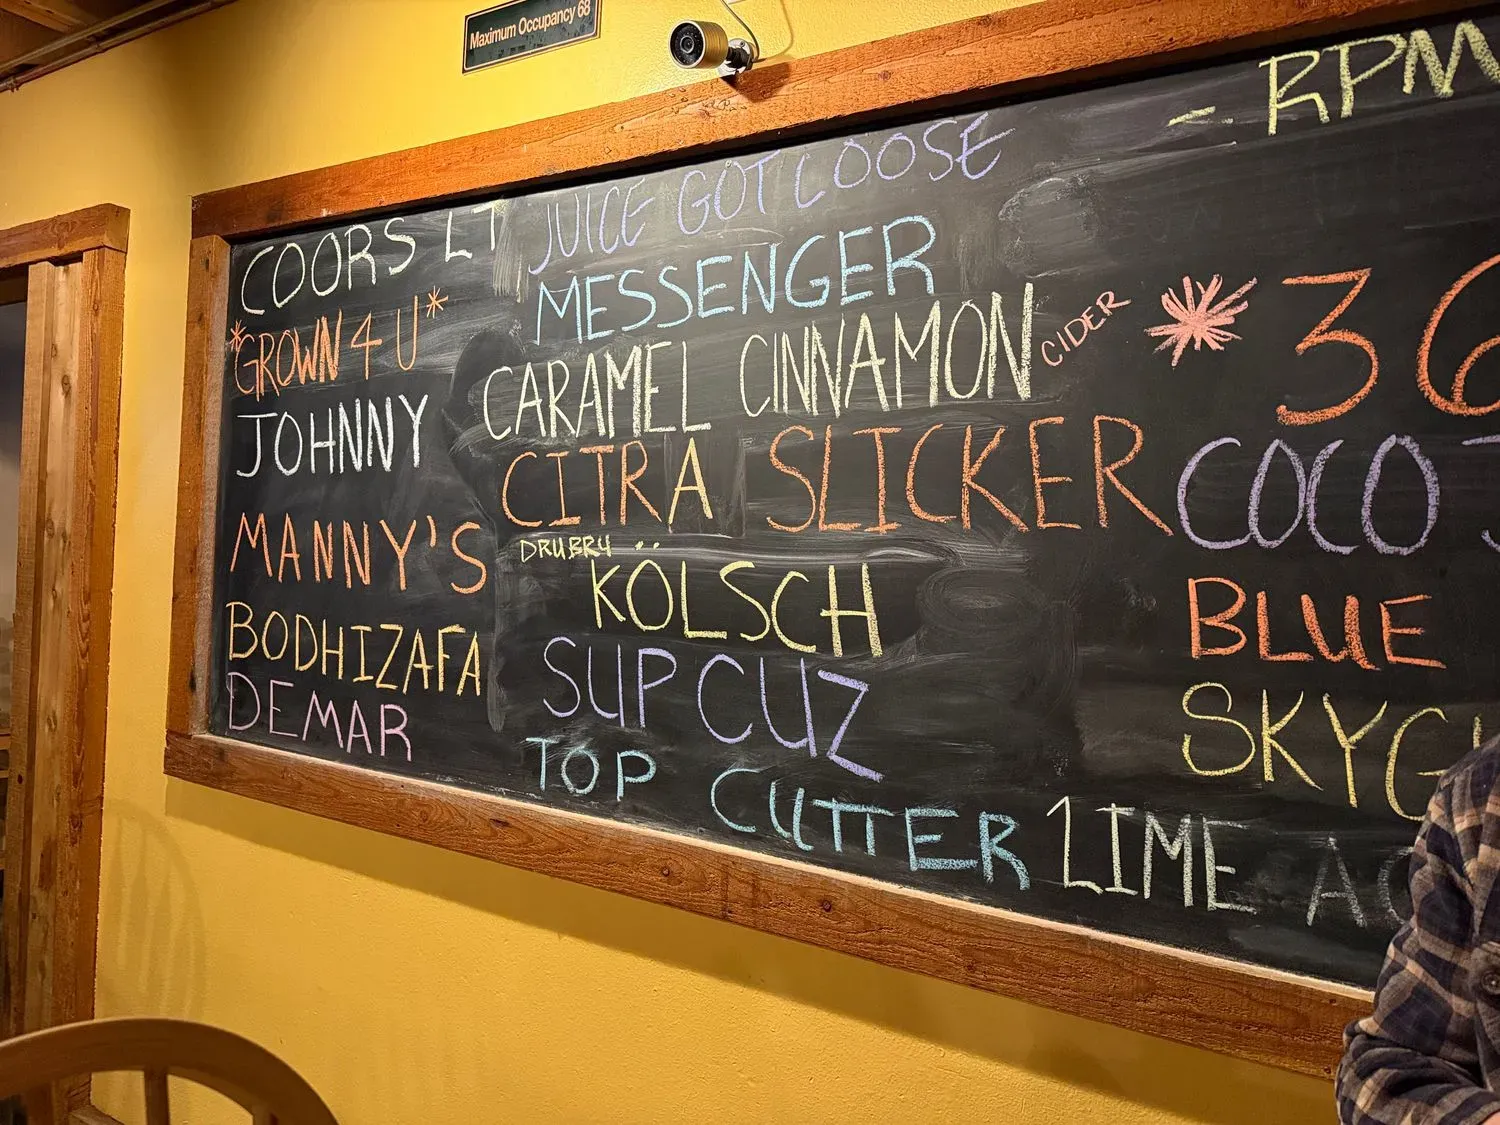 Maximum Occupancy 68
COORS LT
*GROWN 4 U*
JOHNNY
MANNY'S
BODHIZAFA
DEMAR
JUICE GOT LOOSE
MESSENGER
CARAMEL CINNAMON CIDER
CITRA SLICKER
DRUBRU
KÖLSCH
SUP CUZ
TOP CUTTER
- RPM
* 36
COCO
BLUE
SKYG
LIME AG